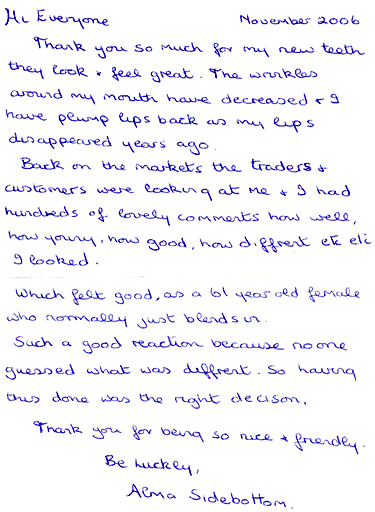 Hi Everyone November 2006
Thank you so much for my new teeth
they look & feel great. The wrinkles
around my mouth have decreased & I
have plump lips back as my lips
disappeared years ago.
Back on the markets the traders &
customers were looking at me & I had
hundreds of lovely comments how well,
how young, how good, how diffrent etc etc
I looked.
Which felt good, as a 61 year old female
who normally just blends in.
Such a good reaction because noone
guessed what was diffrent. So having
this done was the right decison.
Thank you for being so nice & friendly.
Be Luckly,
Alma Sidebottom.